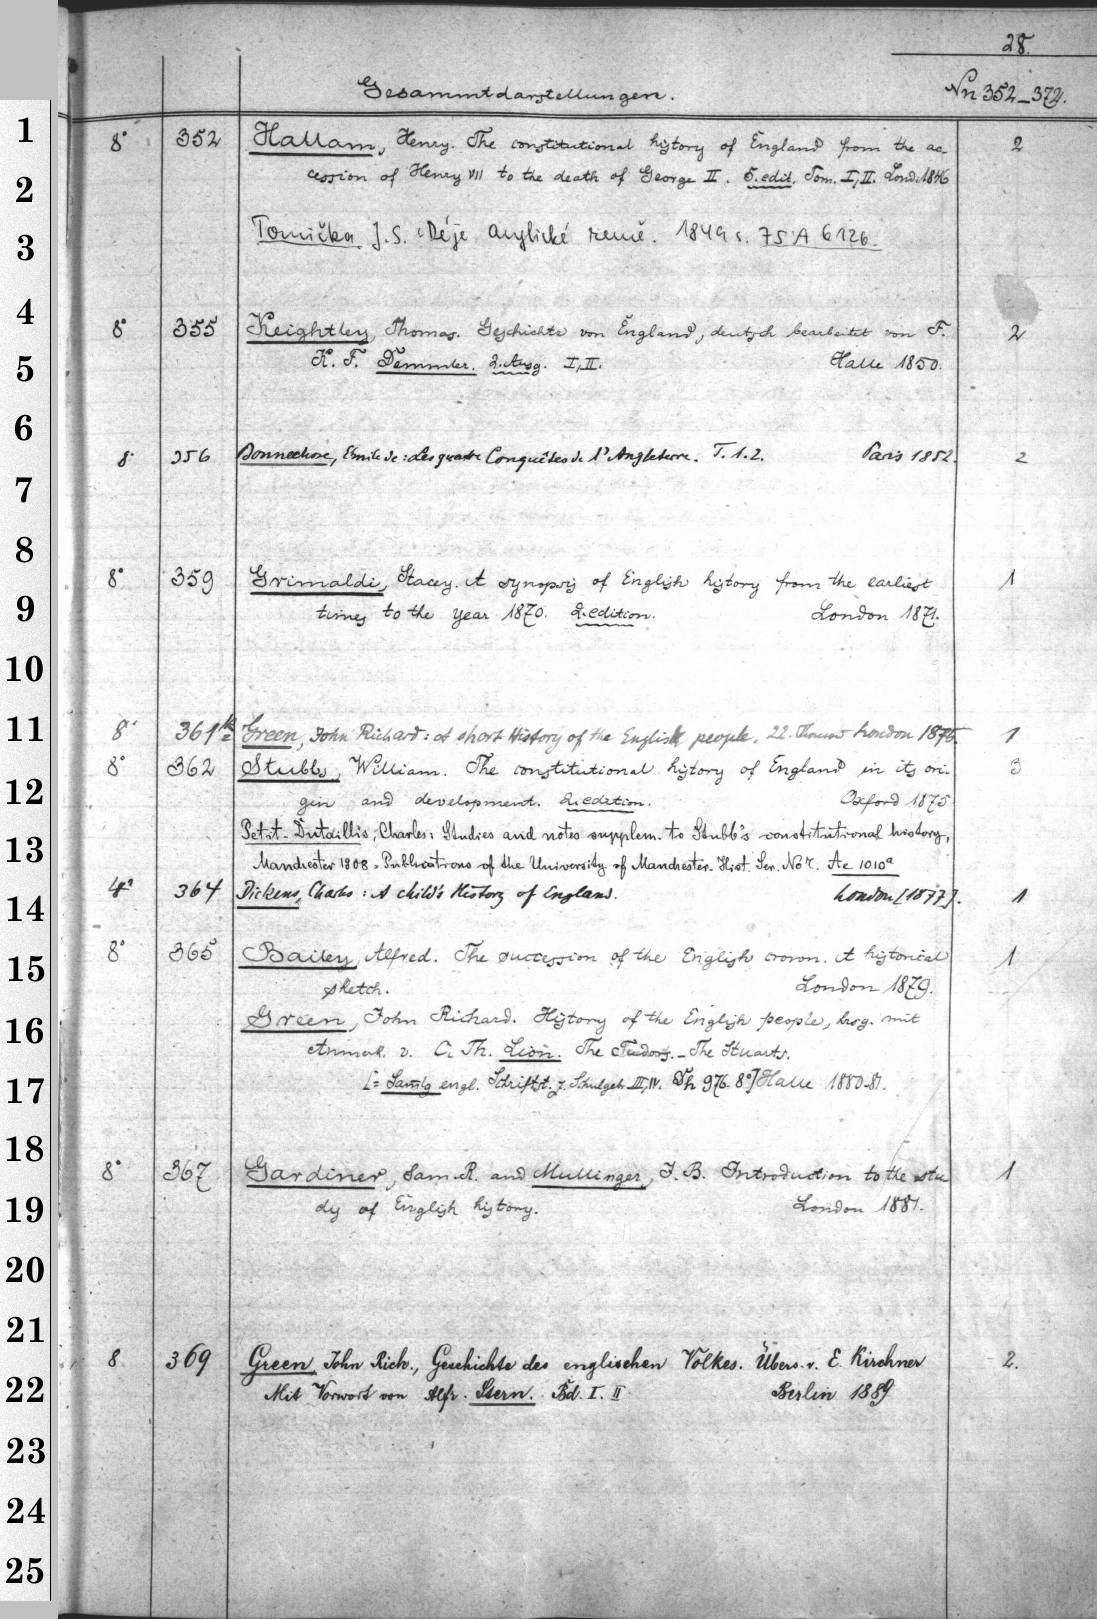 28.
Gesammtdarstellungen. Nn 352–372.
1 8° 352 Hallam, Henry. The constitutional history of England from the ac- 2
2 cession of Henry VII to the death of George II. 5. edit. Tom. I, II. Lond. 1846
3 Tomička J. S. Děje Anglické země. 1849 s. 75 A 6126.
4 8° 355 Keightley, Thomas. Geschichte von England, deutsch bearbeitet von F. 2
5 K. F. Demmler. 2. Ausg. I, II. Halle 1850.
6 8° 356 Bonnechose, Emile de: Les quatre Conquêtes de l'Angleterre. T. 1. 2. Paris 1852. 2
7
8
8° 359 Grimaldi, Stacey. A synopsis of English history from the earliest 1
9 times to the year 1870. 2. edition. London 1871.
10
11 8° 361 Green, John Richard: A short History of the English people. 22. Thousand London 1875. 1
8° 362 Stubbs, William. The constitutional history of England in its ori- 3
12 gin and development. 2. edition. Oxford 1875
13 Petit-Dutaillis, Charles: Studies and notes supplem. to Stubb's constitutional history,
Manchester 1908. Publications of the University of Manchester. Hist. Ser. No 7. Ae 1010a
14 4° 364 Dickens, Charles: A child's History of England. London [1877]. 1
15 8° 365 Bailey, Alfred. The succession of the English crown. A historical 1
sketch. London 1879.
16 Green, John Richard. History of the English people, hrsg. mit
Anmerk. v. C. Th. Lion. The Tudors. – The Stuarts.
17 [= Samlg engl. Schriftst. z. Schulgeb. III, IV. Dh 976. 8°] Halle 1880-81.
18 8° 367 Gardiner, Sam. R. and Mullinger, J. B. Introduction to the stu 1
19 dy of English history. London 1881.
20
21
8 369 Green, John Rich., Geschichte des englischen Volkes. Übers. v. E. Kirchner 2.
22 Mit Vorwort von Alfr. Stern. Bd. I. II Berlin 1889
23
24
25